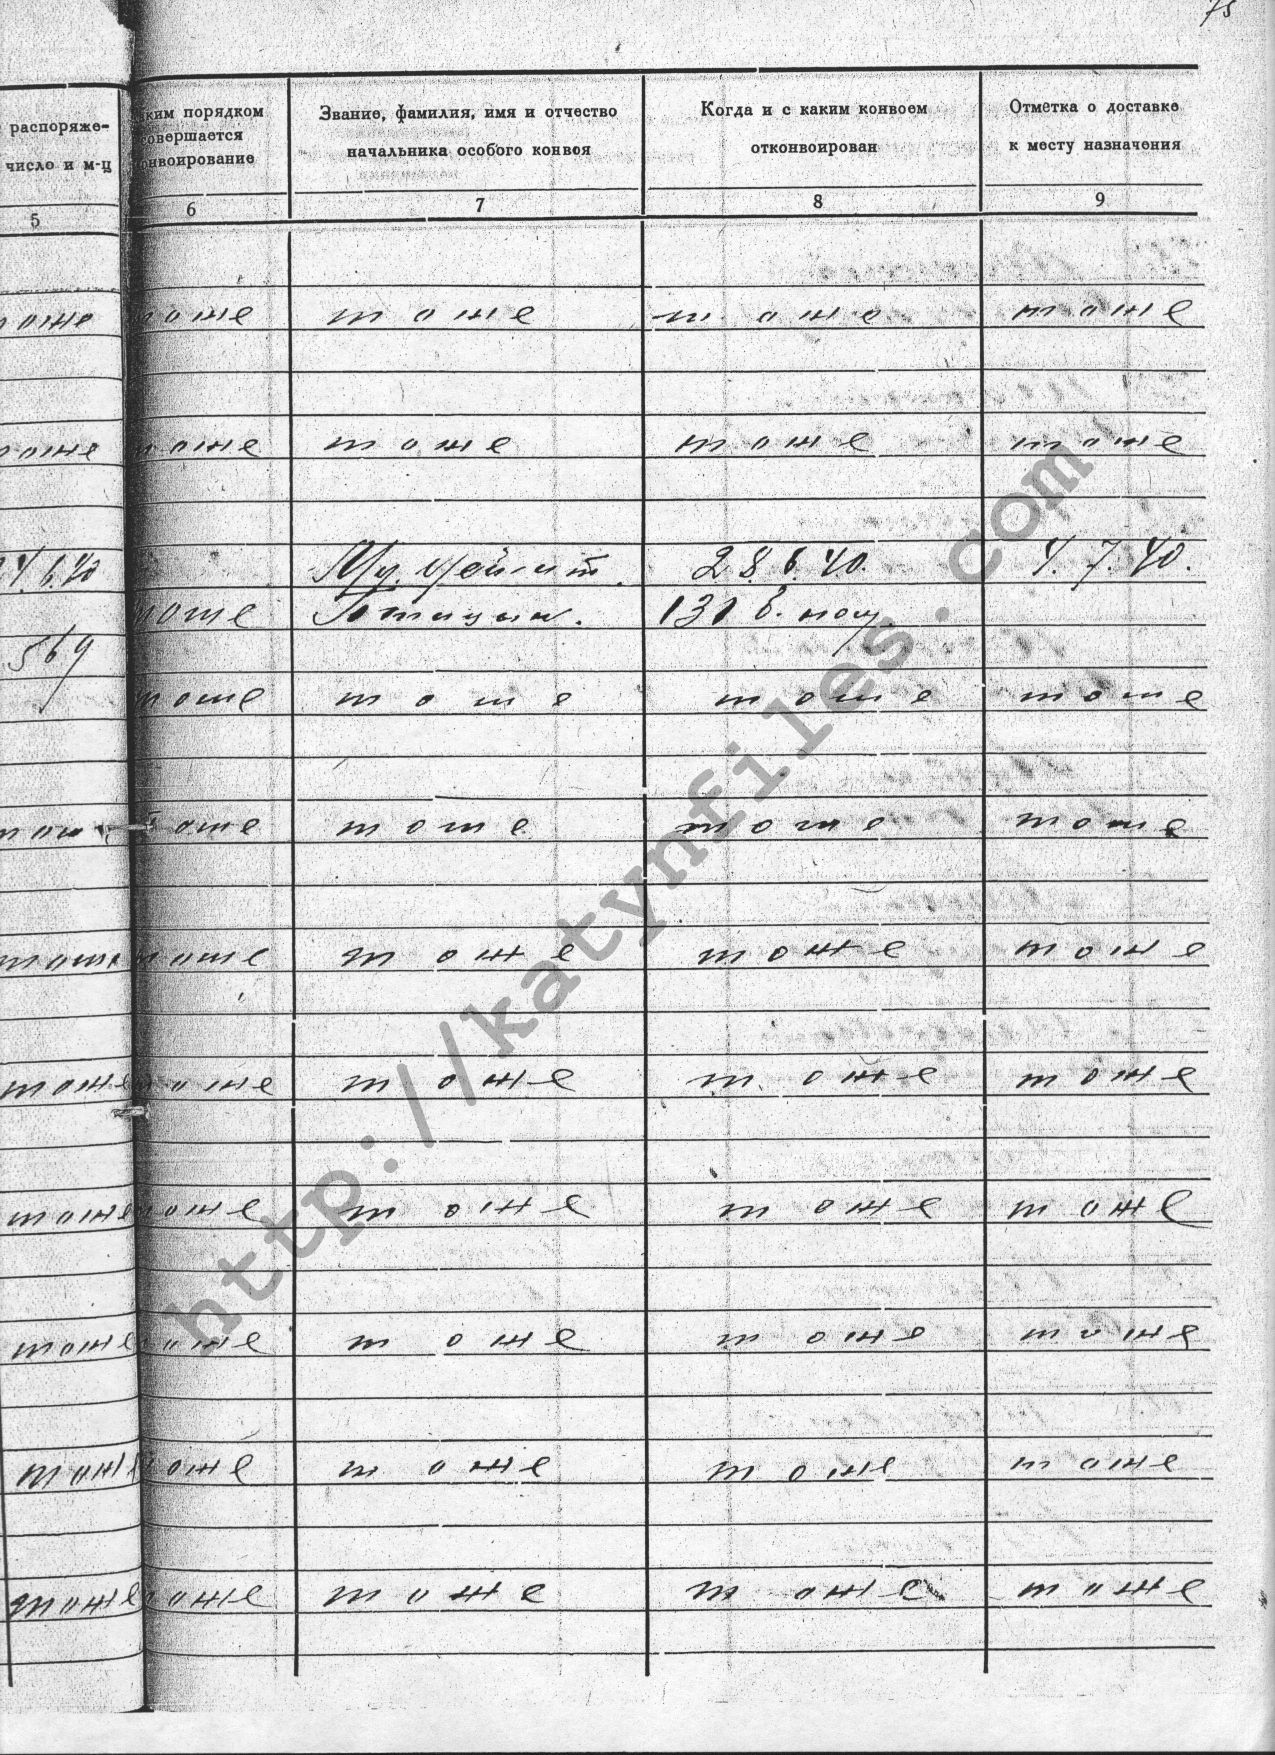 75
распоряже- каким порядком Звание, фамилия, имя и отчество Когда и с каким конвоем Отметка о доставке
совершается
число и м-ц конвоирование начальника особого конвоя отконвоирован к месту назначения
5 6 7 8 9
тоже тоже тоже тоже тоже
тоже тоже тоже тоже тоже
24.6.40 28.6.40. 4.7.40.
тоже Птицын. 131
569
тоже тоже тоже тоже
тоже тоже тоже тоже тоже
тоже тоже тоже тоже тоже
тоже тоже тоже тоже тоже
тоже тоже тоже тоже тоже
тоже тоже тоже тоже тоже
тоже тоже тоже тоже тоже
тоже тоже тоже тоже тоже
http://katynfiles.com